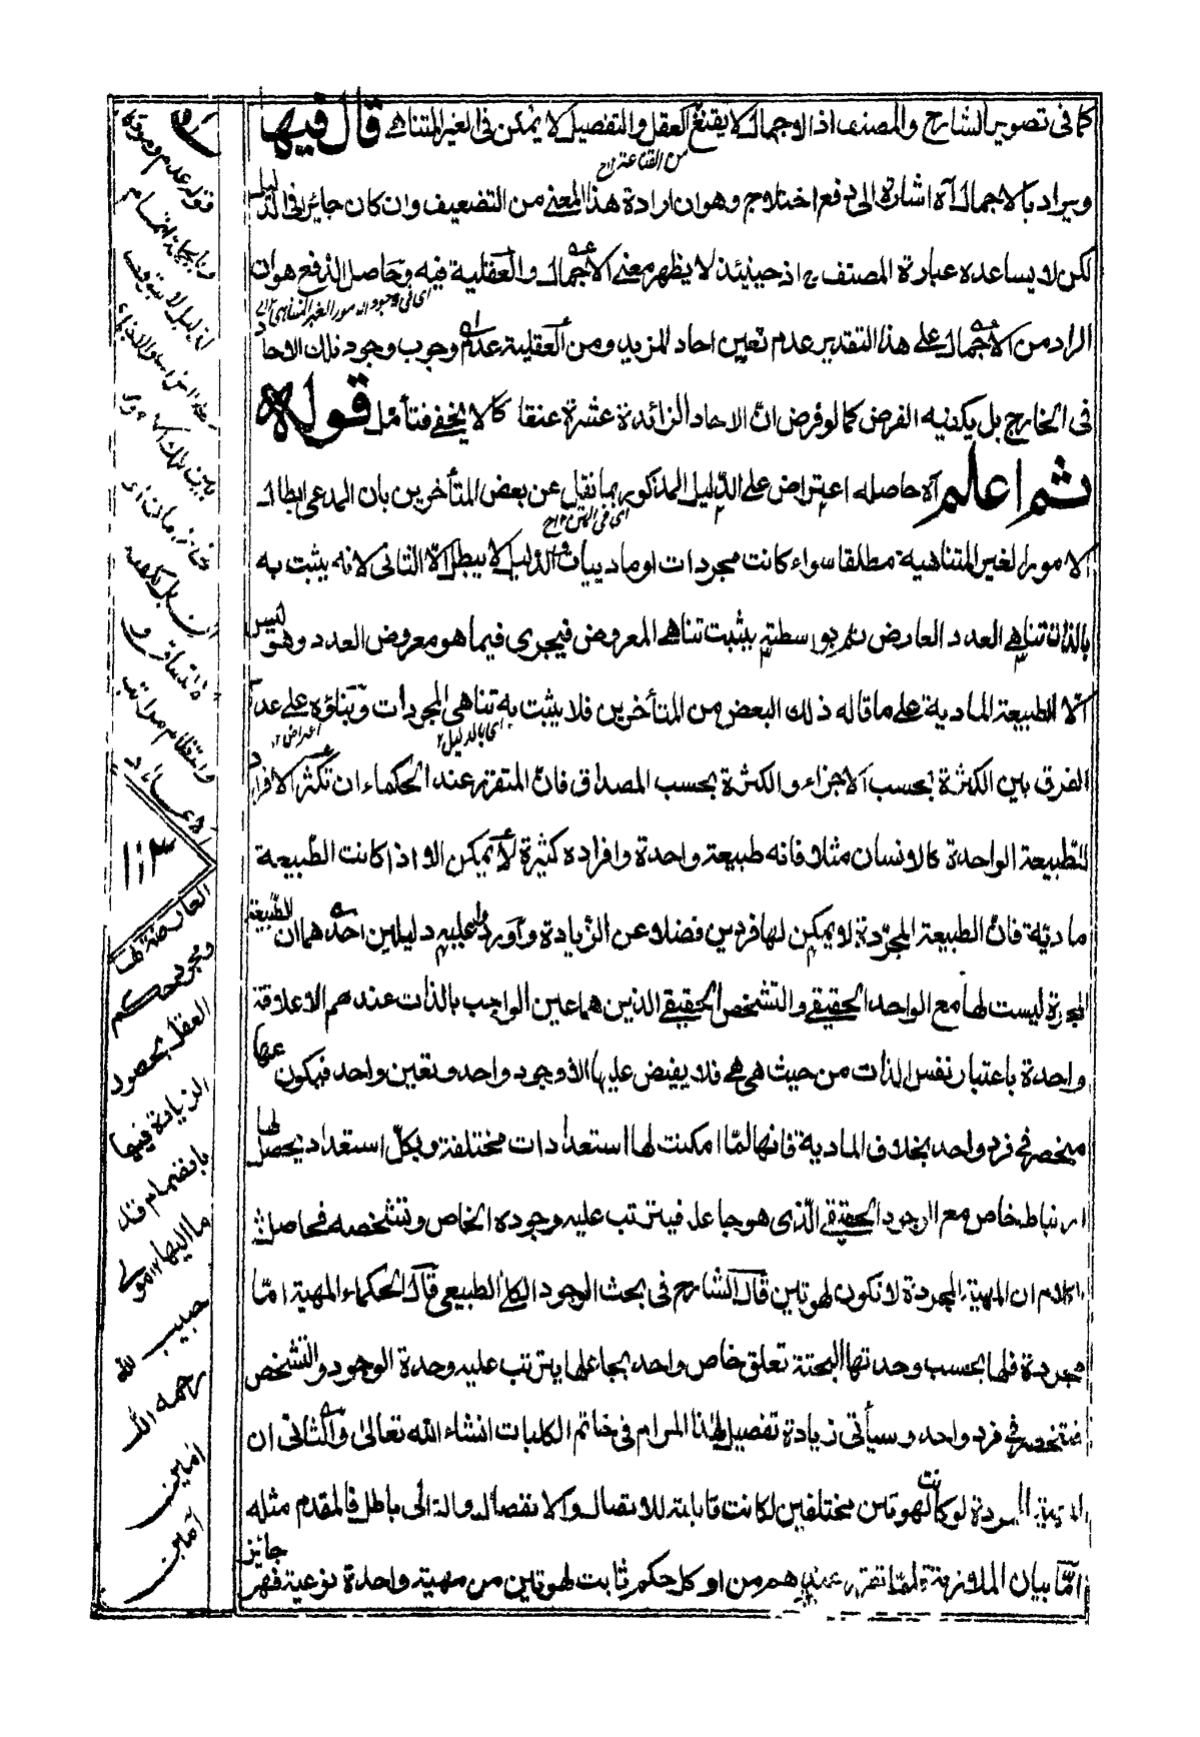 كما فى تصوير الشارح والمصنف اذ الاجمال لا يقنع العقل والتفصيل لا يمكن فى الغير المتناهى قال فيها
من القناعة ١٢ ح
ويراد بالاجمال آه اشارة الى دفع اختلاج وهو ان ارادة هذا المعنى من التضعيف وان كان جائزا فى الدليل
لكن لا يساعده عبارة المصنف ح اذ حينئذ لا يظهر معنى الاجمال والعقلية فيه وحاصل الدفع هو ان
اى فى وجود الامور الغير المتناهى
المراد من الاجمال على هذا التقدير عدم تعيين احاد المزيد ومن العقلية عدم وجوب وجود ذلك الاحاد
فى الخارج بل يكفيه الفرض كما لو فرض ان الاحاد الزائدة عشرة عنقا كما لا يخفى فتأمل قوله
ثم اعلم آه حاصله اعتراض على الدليل المذكور بما نقل عن بعض المتأخرين بان المدعى ابطال
اى فى المتن ١٢ ح
الامور الغير المتناهية مطلقا سواء كانت مجردات او ماديات والدليل لا يبطل الا الثانى لانه يثبت به
بالذات تناهى العدد العارض ثم بواسطته يثبت تناهى المعروض فيجرى فيما هو معروض العدد وهو ليس
الا الطبيعة المادية على ما قاله ذلك البعض من المتأخرين فلا يثبت به تناهى المجردات وبناؤه على عدم
اى بالدليل ١٢
اعتراض ١٢
الفرق بين الكثرة بحسب الاجزاء والكثرة بحسب المصداق فان المتقرر عند الحكماء ان تكثر الافراد
للطبيعة الواحدة كالانسان مثلا فانه طبيعة واحدة وافراده كثيرة لا يمكن الا اذا كانت الطبيعة
مادية فان الطبيعة المجردة لا يمكن لها فردين فضلا عن الزيادة واورد عليه دليلين احدهما ان الطبيعة
المجردة ليست لها مع الواحد الحقيقى والتشخص الحقيقى الذين هما عين الواجب بالذات عندهم الا علاقة
واحدة باعتبار نفس الذات من حيث هى هى فلا يفيض عليها الا وجود واحد وتعين واحد فيكون
منحصرة فى فرد واحد بخلاف المادية فانها لما امكنت لها استعدادات مختلفة وبكل استعداد يحصل لها
ارتباط خاص مع الوجود الحقيقى الذى هو جاعله فيترتب عليه وجوده الخاص وتشخصه فحاصل
الكلام ان المهية المجردة لا تكون لهوتين قال الشارح فى بحث الوجود الكلى الطبيعى قال الحكماء المهية اما
مجردة فلها بحسب وحدتها البحتة تعلق خاص واحد بجاعلها يترتب عليه وحدة الوجود والتشخص
فتنحصر فى فرد واحد وسيأتى زيادة تفصيل لهذا المرام فى خاتم الكليات انشاء الله تعالى والثانى ان
المهية المجردة لو كانت لهوتين مختلفين لكانت قابلة للاتصال والانفصال والتالى باطل فالمقدم مثله
اما بيان الملازمة فلما تقرر عندهم من ان كل حكم ثابت لهوتين من مهية واحدة نوعية فهو جائز
قوله عدم وموقه
١١٣
العارضة لها
ومجرد حكم
العقل بحصول
الزيادة فيها
بانضمام قدر
ما اليها ١٢ مولى
حبيب الله
رحمه الله
امين
آمين